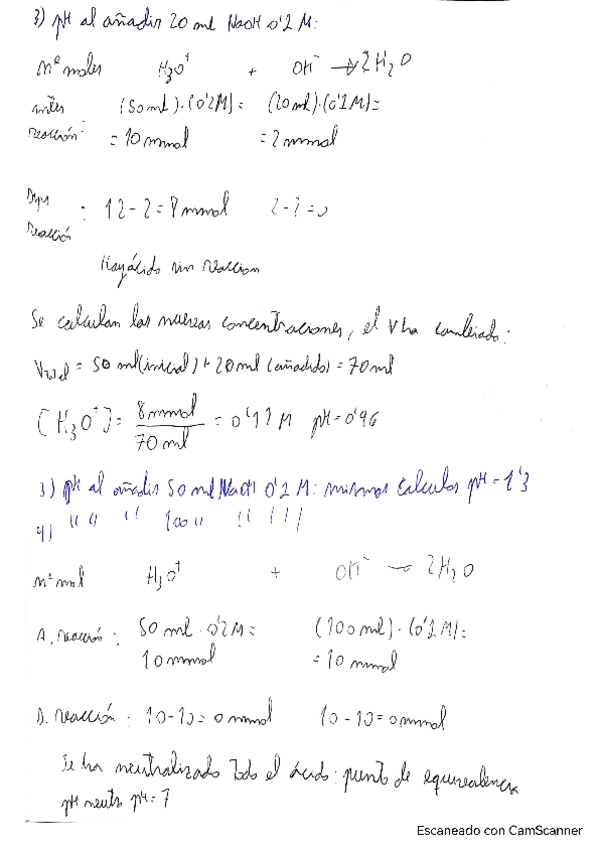 3) pH al añadir 20 ml NaOH 0'1 M:
nº moles H3O+ + OH- → 2H2O
antes reacción: (50 ml)·(0'2M)= (20 ml)·(0'1M)=
= 10 mmol = 2 mmol
Dps reacción : 12-2=8 mmol 2-2=0
Hay ácido sin reaccion
Se calculan las nuevas concentraciones, el V ha cambiado:
Vtotal = 50 ml(inicial) + 20 ml (añadido) = 70 ml
[H3O+] = 8 mmol / 70 ml = 0'11 M pH=0'96
3) pH al añadir 50 ml NaOH 0'1 M: mismos calculos pH = 1'3
4) " " " 100 " " " "
nº mol H3O+ + OH- → 2H2O
A. reacción : 50 ml · 0'2M = (100 ml)·(0'1M)=
10 mmol = 10 mmol
D. reacción : 10-10=0 mmol 10-10=0 mmol
Se ha neutralizado todo el ácido: punto de equivalencia
pH neutro pH=7
Escaneado con CamScanner